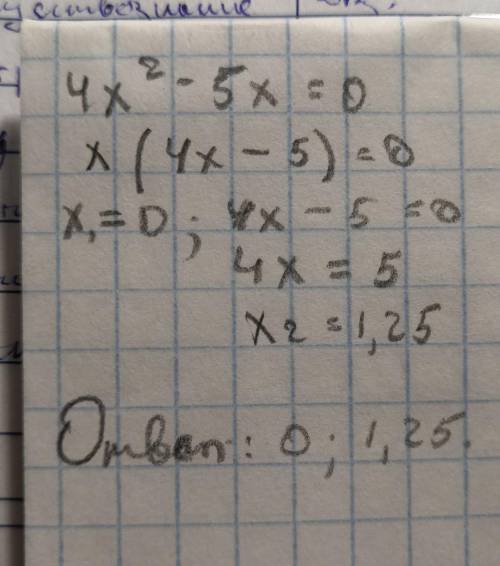 4x² - 5x = 0
x (4x - 5) = 0
x₁ = 0 ; 4x - 5 = 0
4x = 5
x₂ = 1,25
Ответ: 0 ; 1,25.